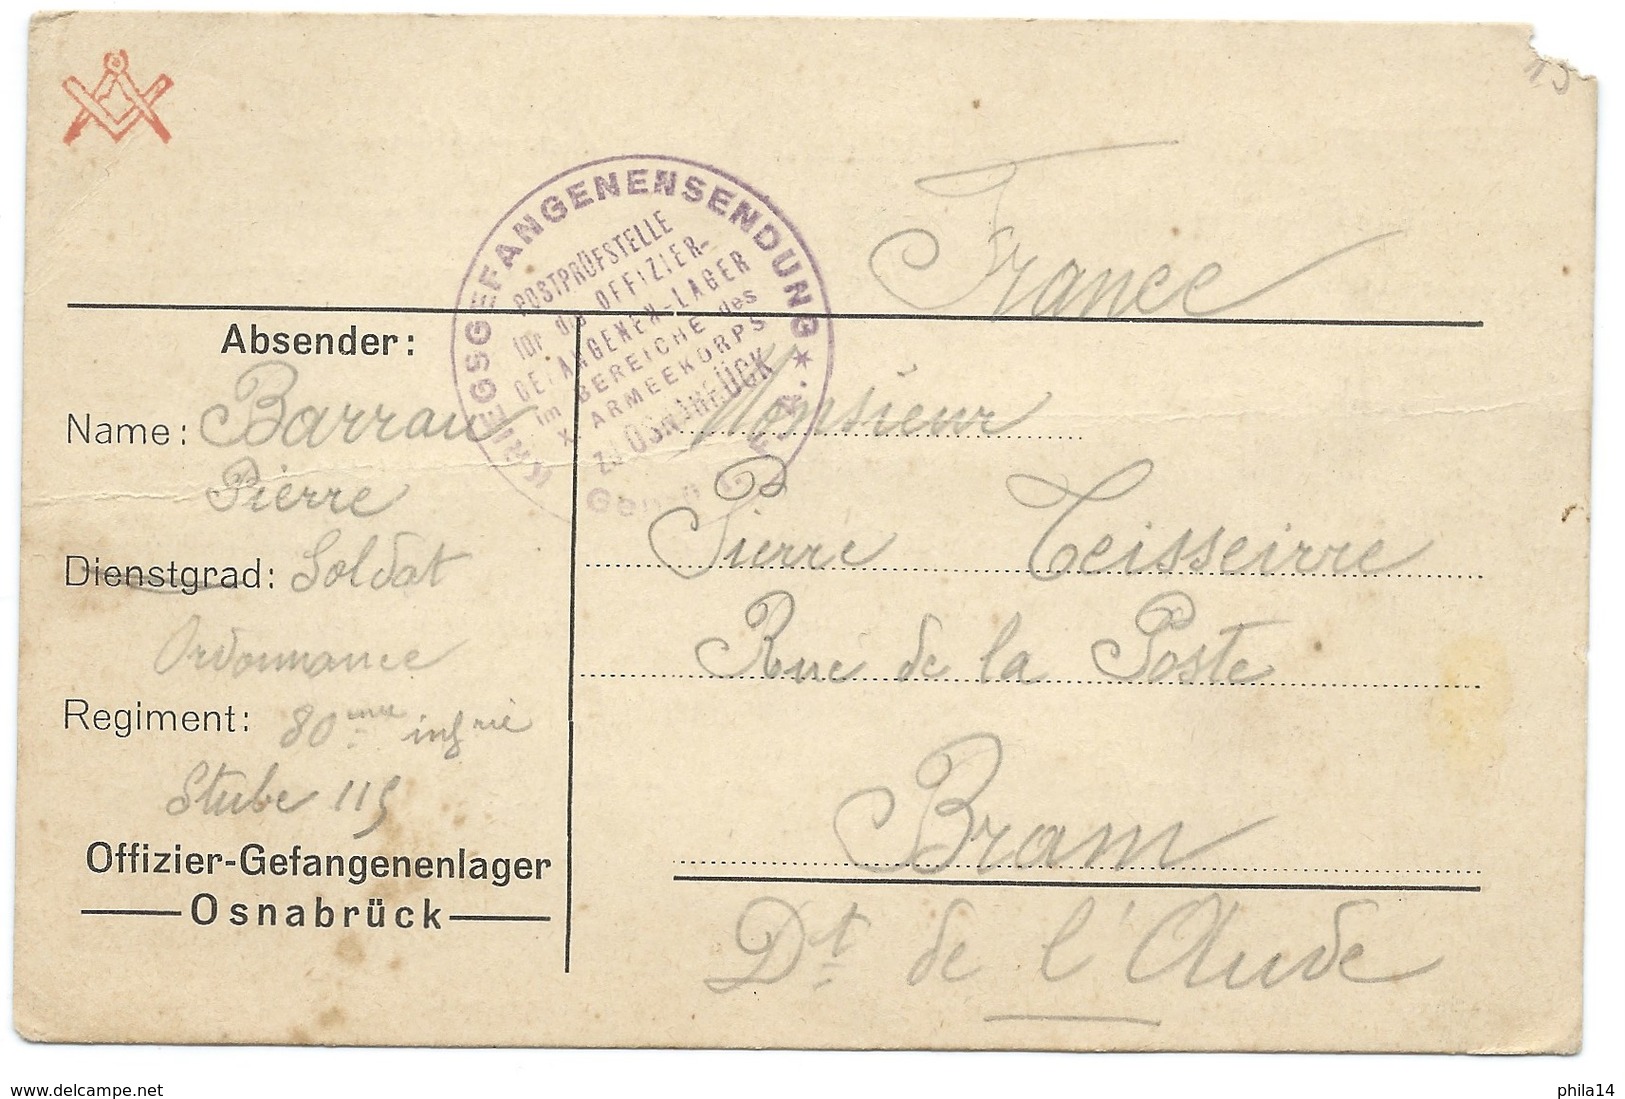 15
KRIEGSGEFANGENENSENDUNG
POSTPRÜFSTELLE
für die OFFIZIER-
GEFANGENEN-LAGER
im BEREICHE des
X. ARMEEKORPS
zu OSNABRÜCK
France
Absender:
Name: Barrau
Pierre
Dienstgrad: Soldat
Ordonnance
Regiment: 80ème infrie
Stube 115
Offizier-Gefangenenlager
Osnabrück
Monsieur
Pierre Teisseirre
Rue de la Poste
Bram
Dt de l'Aude
www.delcampe.net
phila14